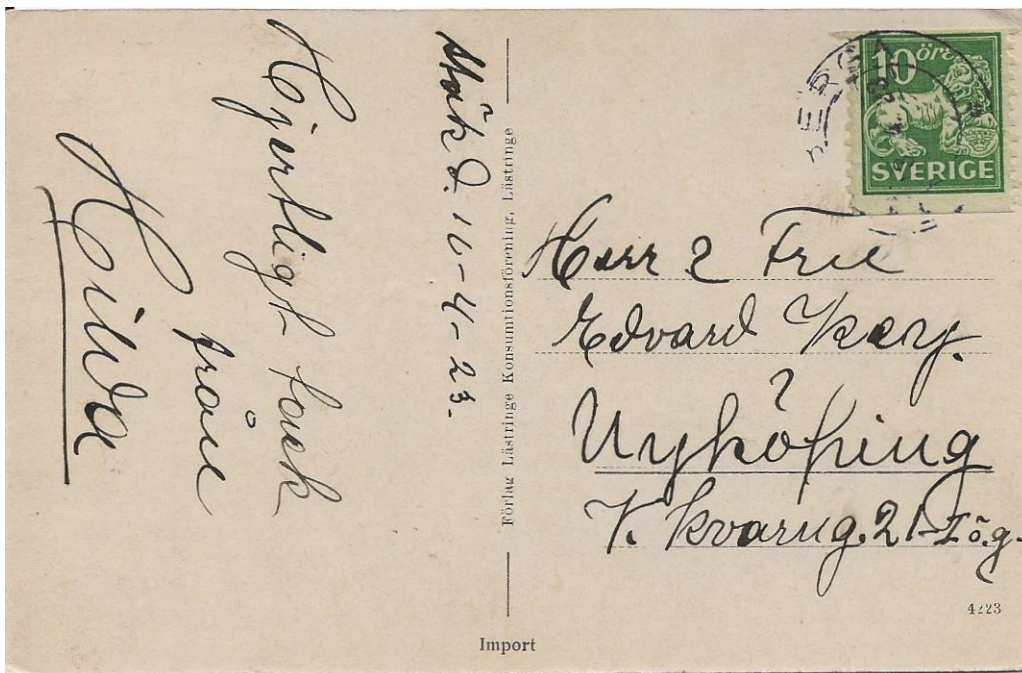 Stäk d. 10-4-23.
Hjertligt tack
från
Hilda
Förlag Lästringe Konsumtionsförening, Lästringe
10 öre
SVERIGE
Herr & Fru
Edvard
Nyköping
V. Kvarng. 21 I ö.g.
4223
Import